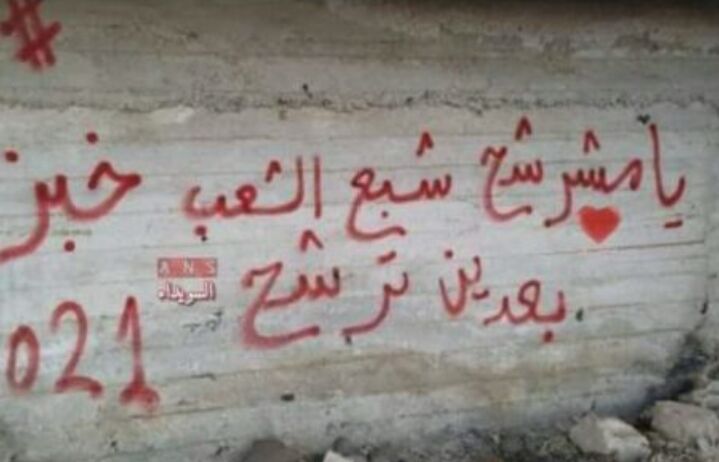 #
يا مشرشح شبع الشعب خبز
بعدين ترشح
ANS
السويداء
021